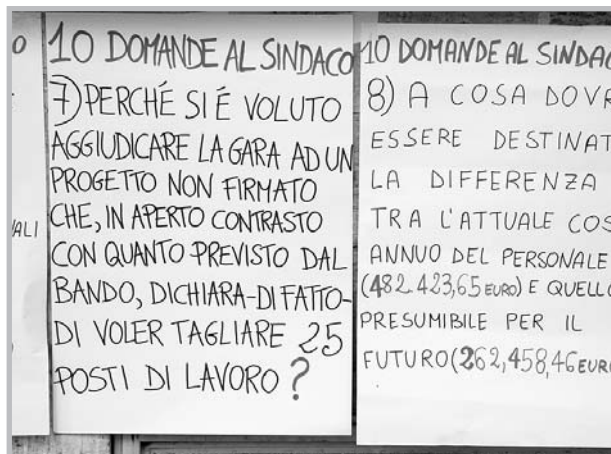 O
ALI
10 DOMANDE AL SINDACO
7) PERCHÉ SI É VOLUTO
AGGIUDICARE LA GARA AD UN
PROGETTO NON FIRMATO
CHE, IN APERTO CONTRASTO
CON QUANTO PREVISTO DAL
BANDO, DICHIARA-DI FATTO-
DI VOLER TAGLIARE 25
POSTI DI LAVORO?
10 DOMANDE AL SINDAC
8) A COSA DOVR
ESSERE DESTINAT
LA DIFFERENZA
TRA L'ATTUALE COS
ANNUO DEL PERSONALE
(482.423,65 EURO) E QUELLO
PRESUMIBILE PER IL
FUTURO (262,458,46 EURO